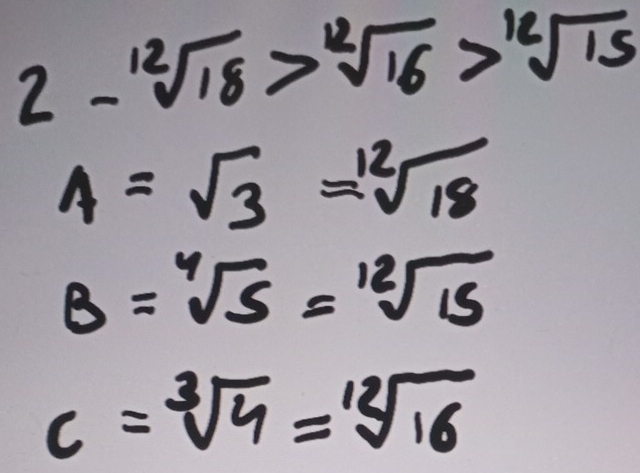 2 - ¹²√18 > ¹²√16 > ¹²√15
A = √3 = ¹²√18
B = ⁴√5 = ¹²√15
C = ³√4 = ¹²√16